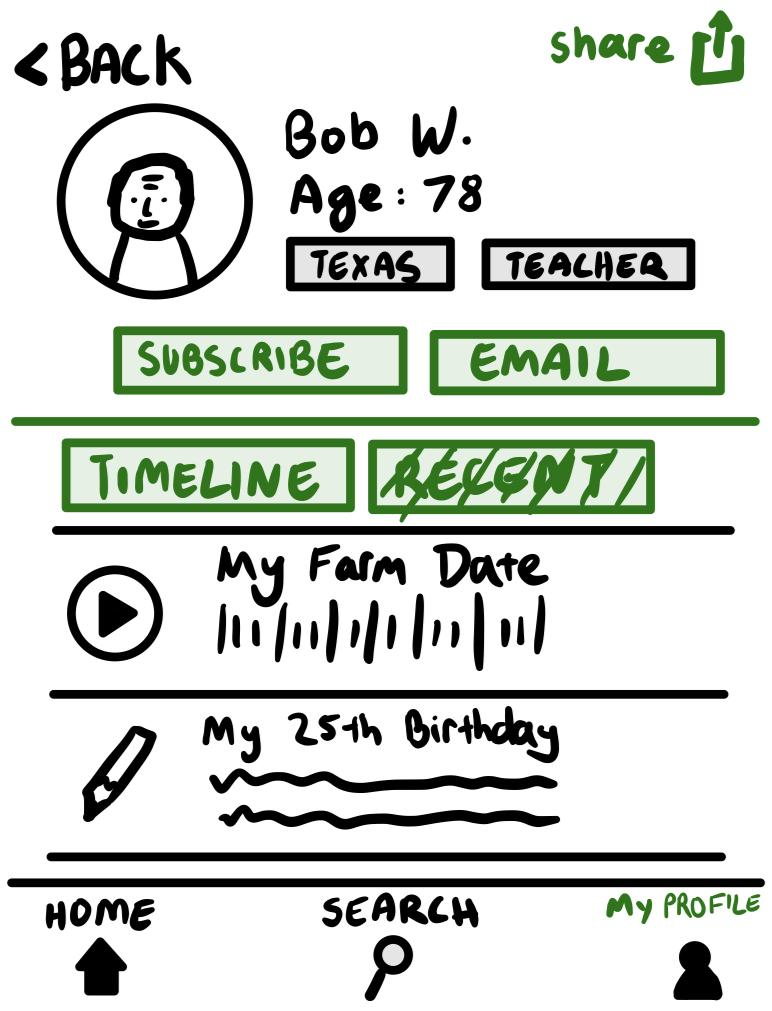 < BACK share
Bob W.
Age: 78
TEXAS TEACHER
SUBSCRIBE EMAIL
TIMELINE RECENT
My Farm Date
My 25th Birthday
HOME SEARCH My PROFILE